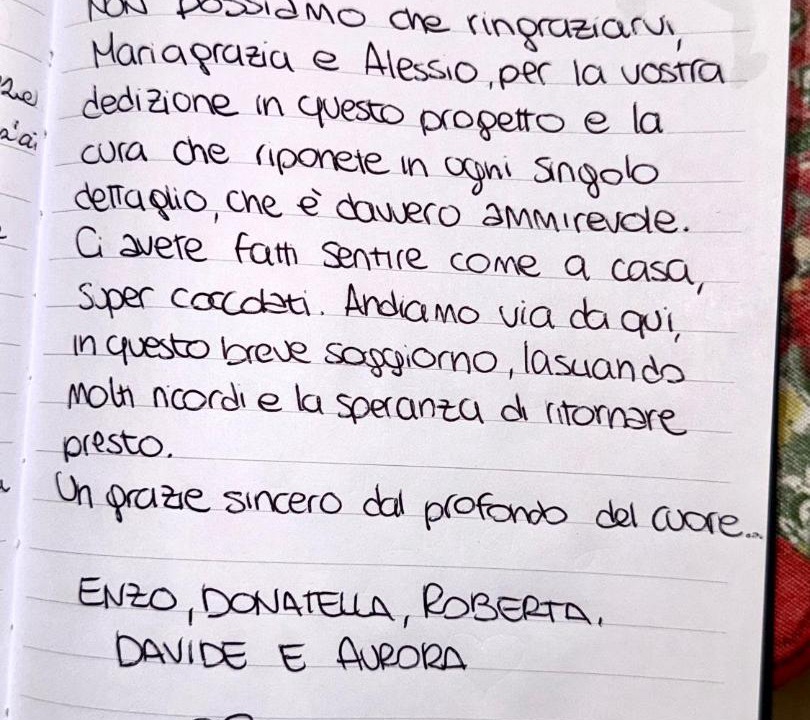 NON POSSIAMO che ringraziarvi,
Mariagrazia e Alessio, per la vostra
dedizione in questo progetto e la
cura che riponete in ogni singolo
dettaglio, che è davvero ammirevole.
Ci avete fatti sentire come a casa,
super coccolati. Andiamo via da qui,
in questo breve soggiorno, lasciando
molti ricordi e la speranza di ritornare
presto.
Un grazie sincero dal profondo del cuore...
ENZO, DONATELLA, ROBERTA,
DAVIDE E AURORA